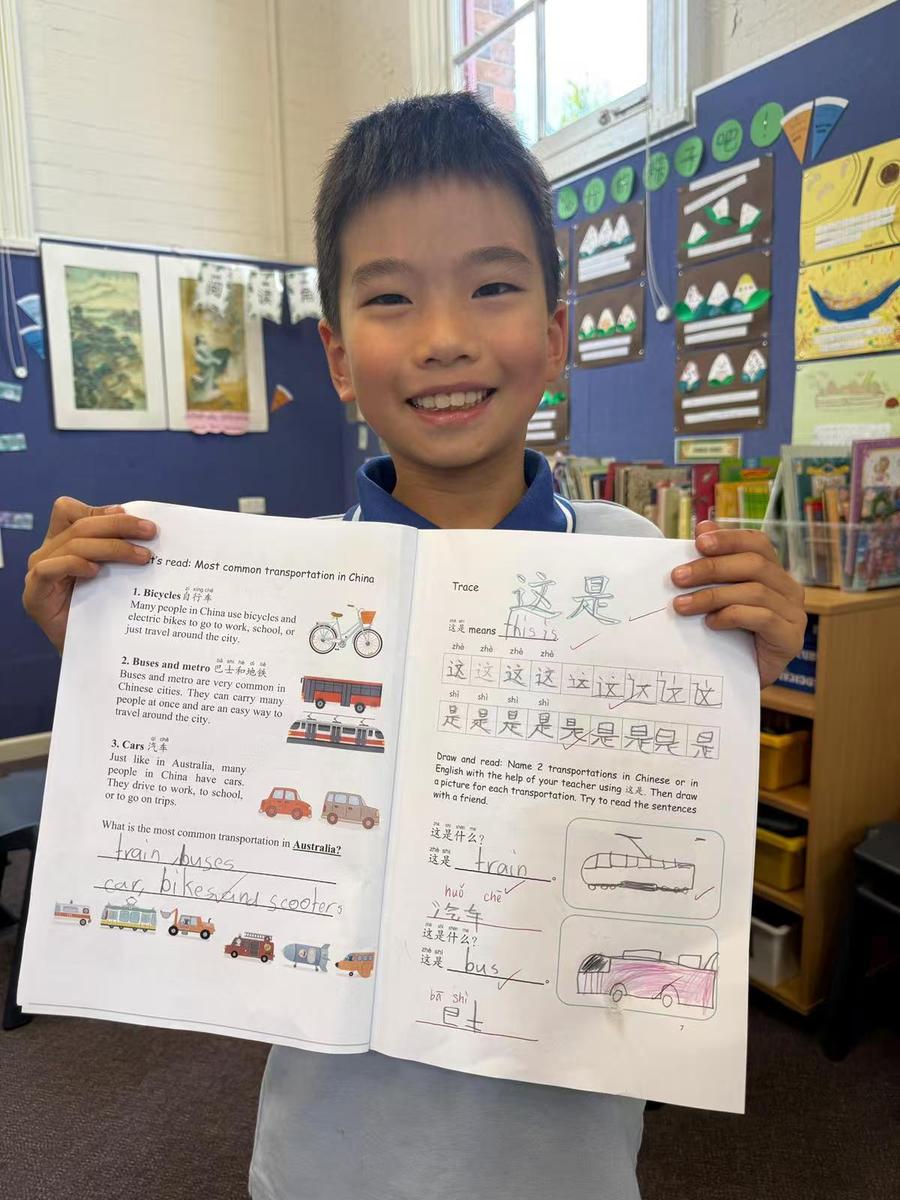 's read: Most common transportation in China
zì xíng chē
1. Bicycles 自行车
Many people in China use bicycles and
electric bikes to go to work, school, or
just travel around the city.
bā shì hé dì tiě
2. Buses and metro 巴士和地铁
Buses and metro are very common in
Chinese cities. They can carry many
people at once and are an easy way to
travel around the city.
qì chē
3. Cars 汽车
Just like in Australia, many
people in China have cars.
They drive to work, to school,
or to go on trips.
What is the most common transportation in Australia?
train buses
car, bikes, and scooters
Trace 这是
zhè shì
这是 means this is
zhè zhè zhè zhè
这 这 这 这 这 这 这 这 这
shì shì shì shì
是 是 是 是 是 是 是 是 是
Draw and read: Name 2 transportations in Chinese or in
English with the help of your teacher using 这是. Then draw
a picture for each transportation. Try to read the sentences
with a friend.
zhè shì shén me
这是什么?
zhè shì
这是 train 。
huǒ chē
汽车
zhè shì shén me
这是什么?
zhè shì
这是 bus 。
bā shì
巴士
7